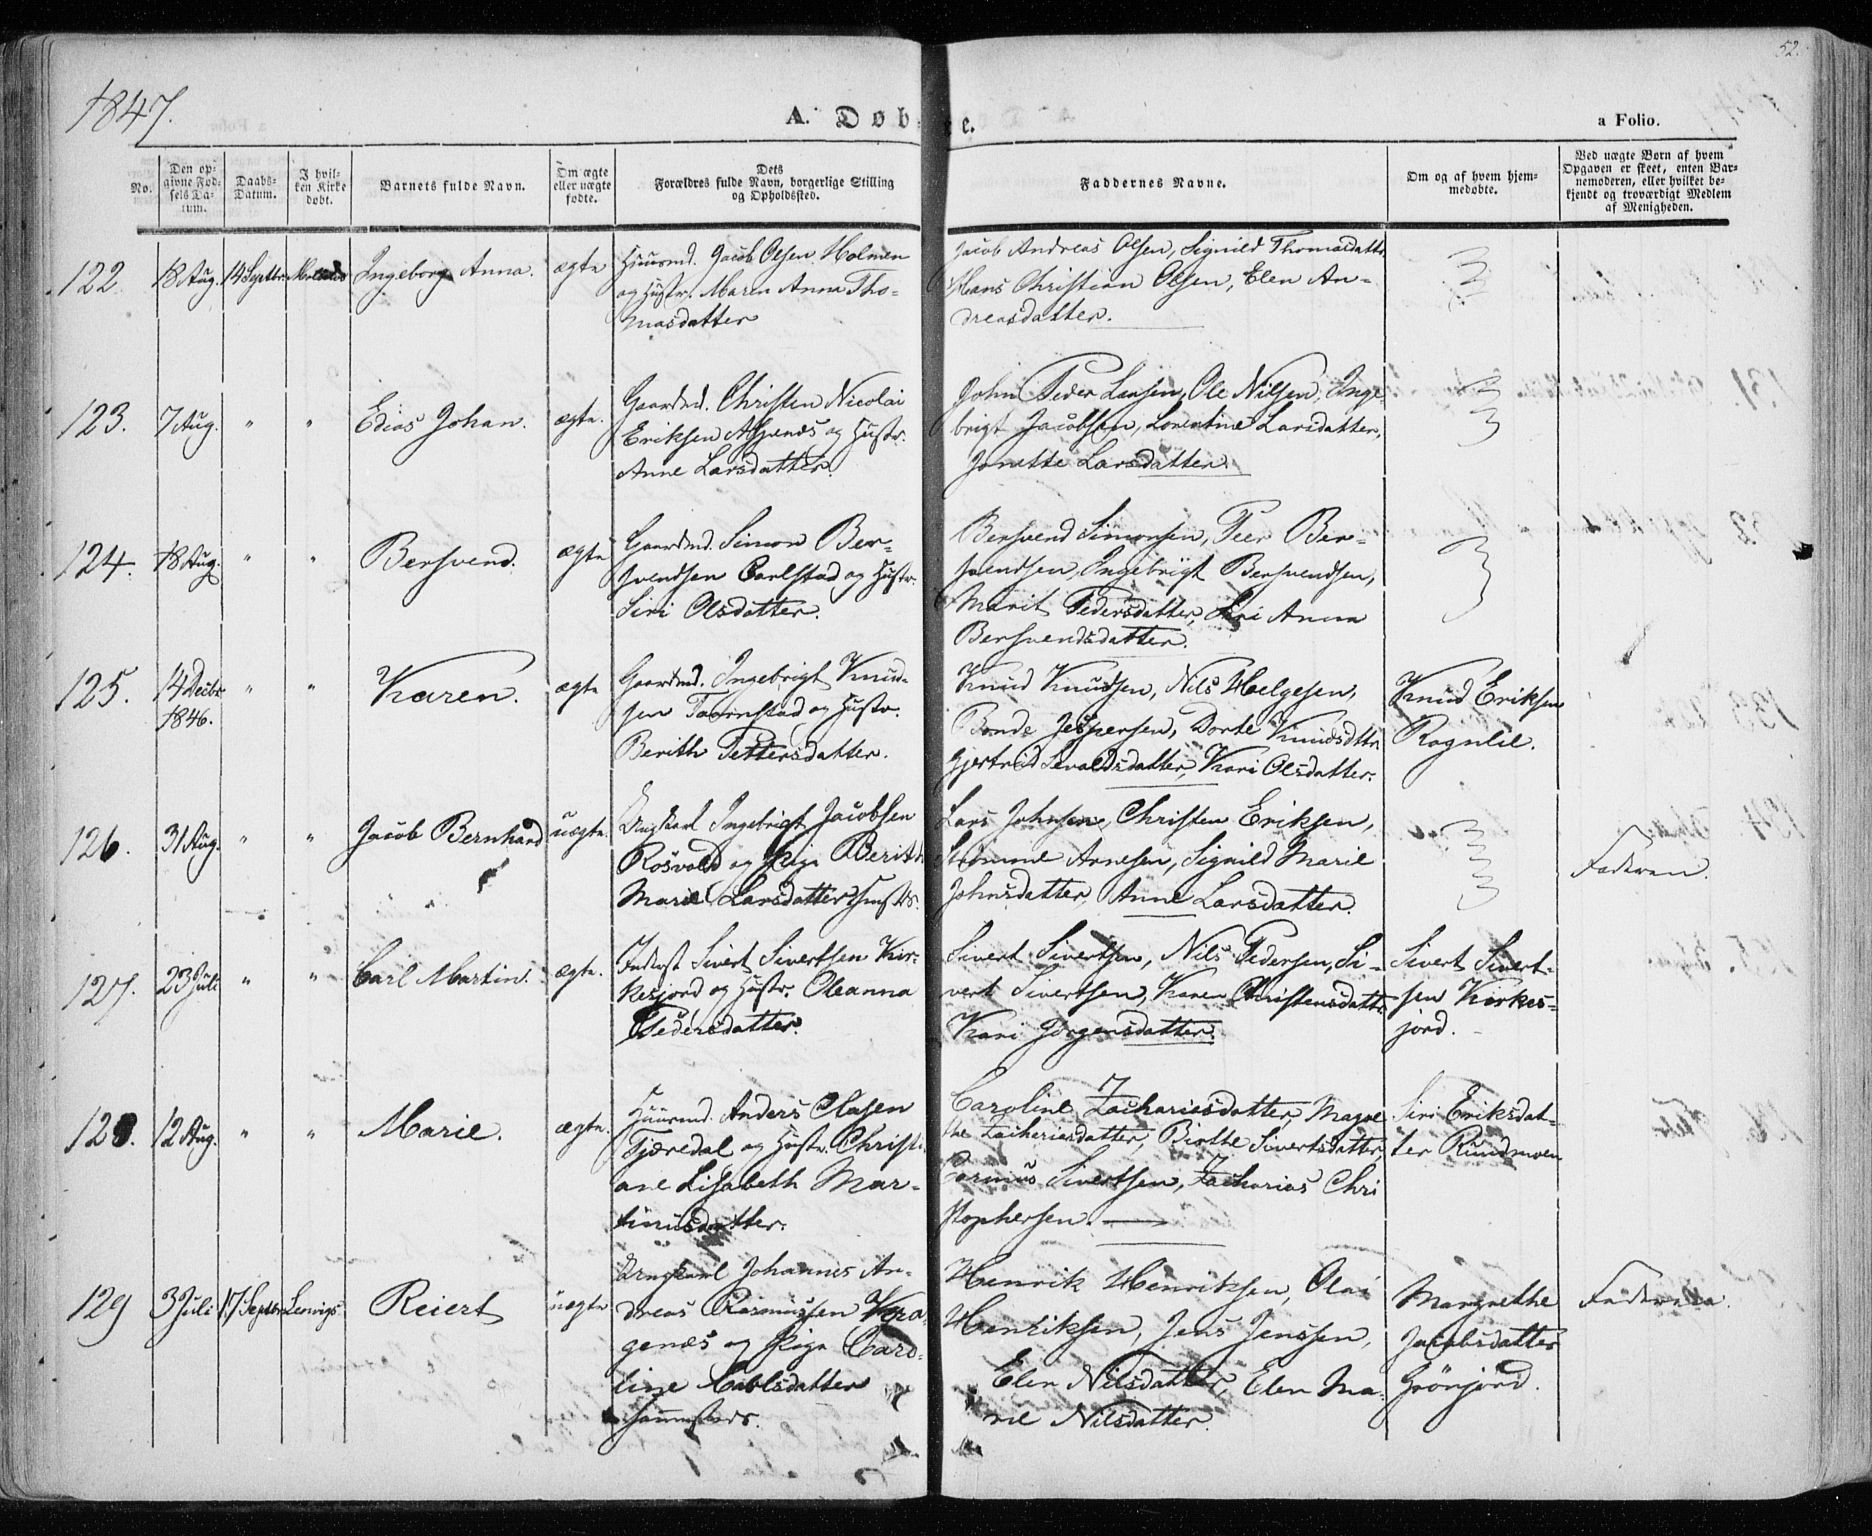 52.
1847.
A. Døb- e.
a Folio.
No.
Den op-
givne Fød-
sels Da-
tum.
Daabs-
Datum.
I hvil-
ken Kirke
døbt.
Barnets fulde Navn.
Om ægte
eller uægte
fødte.
Dets
Forældres fulde Navn, borgerlige Stilling
og Opholdssted.
Faddernes Navne.
Om og af hvem hjem-
medøbte.
Ved uægte Børn af hvem
Opgaven er skeet, enten Bar-
nemoderen, eller hvilket be-
kjendt og troværdigt Medlem
af Menigheden.
122. 18 Aug. 14 Septbr. Ingeborg Anna. ægte
Huusmd. Jacob Olsen Holmen
og Hustr. Maren Anna Tho-
masdatter
Jacob Andreas Olsen, Signild Thomasdattr
Hans Christian Olsen, Elen An-
dreasdatter.
123. 7 Aug. " " Edias Johan. ægte.
Gaardmd. Christen Nicolai
Eriksen Alsenes og Hustr.
Anne Larsdatter.
John Peder Larsen, Ole Nilsen, Inge-
brigt Jacobsen, Lorentine Larsdatter,
Jonette Larsdatter.
124. 18 Aug. " " Bersvend. ægte
Gaardmd. Simon Ber-
svendsen Carlstad og Hustr.
Siri Olsdatter.
Bersvend Simonsen, Peer Ber-
svendsen, Ingebrigt Bersvendsen,
Marit Pedersdatter, Anna
Bersvendsdatter.
125. 14 Decbr. 1846. " " Karen. ægte
Gaardmd. Ingebrigt Knud-
sen Taarnstad og Hustr.
Berith Pettersdatter.
Knud Knudsen, Nils Helgesen,
Bonde Jespersen, Dorte Knudsdttr.
Gjertrud Sevaldsdatter, Kari Olsdatter.
Knud Eriksen
Rognlie.
126. 31 Aug. " " Jacob Bernhard uægte.
Ungkarl Ingebrigt Jacobsen
Rosvold og Pige Berith
Marie Larsdatter
Lars Johnsen, Christen Eriksen,
Arnesen, Signild Marie
Johnsdatter, Anne Larsdatter.
Faderen.
127. 23 Juli " " Carl Martin. ægte.
Inderst Sivert Sivertsen Kir-
kesjord og Hustr. Oleanna
Pedersdatter.
Sivert Sivertsen, Nils Pedersen, Si-
vert Sivertsen, Karen Christensdattr
Kari Jørgensdatter.
Sivert Sivert-
sen Kirkes-
jord.
128. 12 Aug. " " Marie. ægte.
Huusmd. Anders Olasen
Fjæredal og Hustr. Christi-
ane Lisabeth Mar-
tinusdatter.
Caroline Zachariesdatter, Magne
the Zachariasdatter, Birthe Sivertsdatter,
Rasmus Sivertsen, Zacharias Chri
stophersen.
Siri Eriksdat-
ter Rundmoen
129 3 Juli 17 Septbr. Lenvigs Reiert uægte
Ungkarl Johannes An-
dreas Rasmussen
genæs og Pige Caro-
line Carlsdatter
sammesteds.
Henrik Henriksen, Olai
Henriksen, Jens Jenssen,
Elen Nilsdatter, Elen Ma-
rie Nilsdatter.
Margrethe
Jacobsdatter
Grønjord.
Faderen.